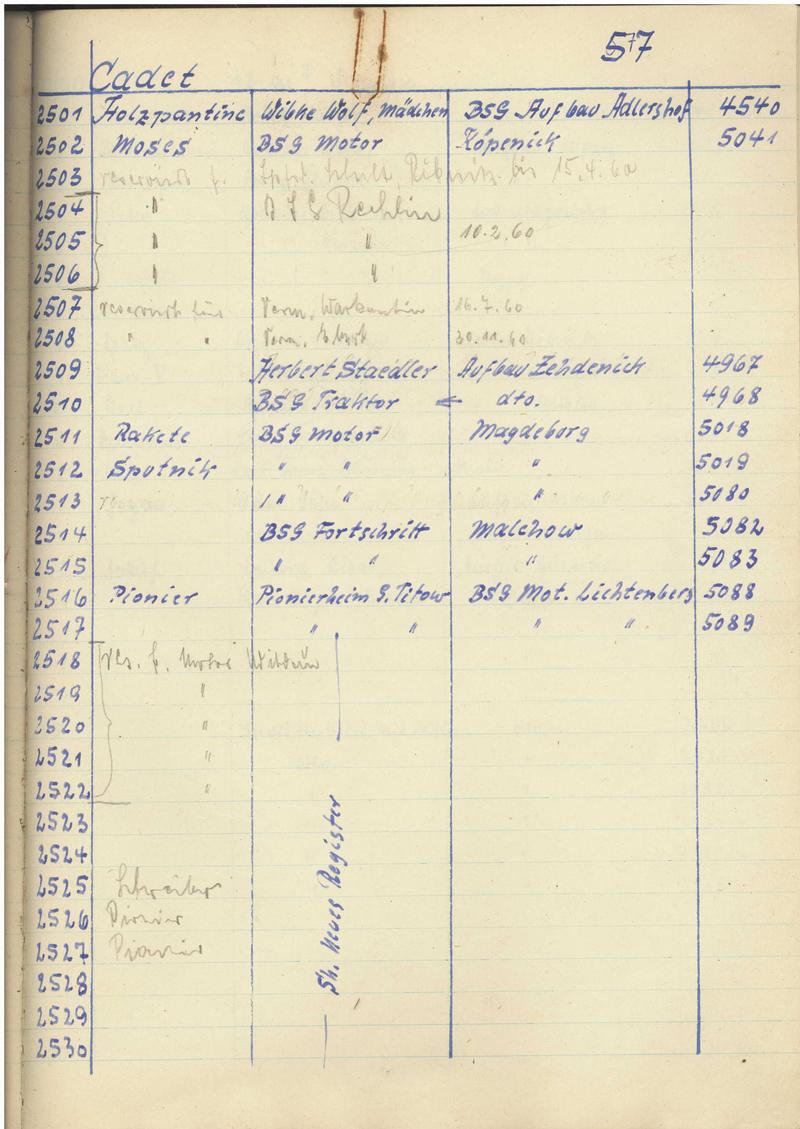 577
Cadet
2501 Holzpantine Wibke Wolf, Mädchen BSG Aufbau Adlershof 4540
2502 Moses BSG Motor Köpenick 5041
2503 reserviert f. bis 15.4.60
2504 " Rechlin
2505 " " 10.2.60
2506 " "
2507 reserviert für Herm. Warkentin 16.7.60
2508 " " Herm. 30.11.60
2509 Herbert Staedler Aufbau Zehdenick 4967
2510 BSG Traktor dto. 4968
2511 Rakete BSG Motor Magdeburg 5018
2512 Sputnik " " " 5019
2513 " " " 5080
2514 BSG Fortschritt Malchow 5082
2515 " " " 5083
2516 Pionier Pionierheim G. Titow BSG Mot. Lichtenberg 5088
2517 " " " " 5089
2518 res. f. Motor
2519 "
2520 "
2521 "
2522 "
2523
2524
2525
2526 Pionier
2527 Pionier
2528
2529
2530
Sh. Neues Register